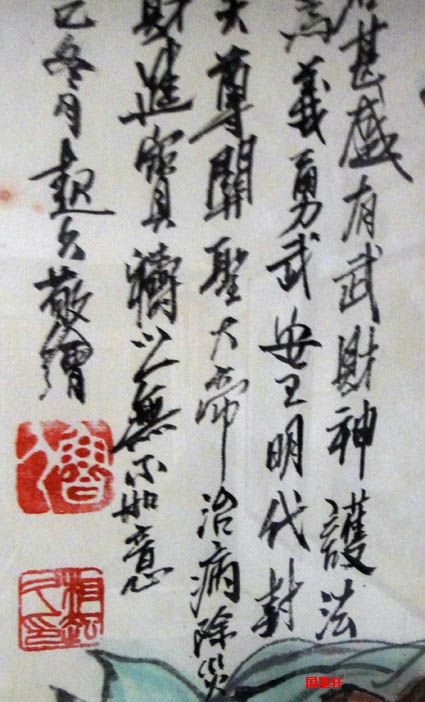 甚盛有武財神護法
為義勇武安王明代封
天尊關聖大帝治病除災
財進寶禱以無不如意
己冬月趙公敬繪